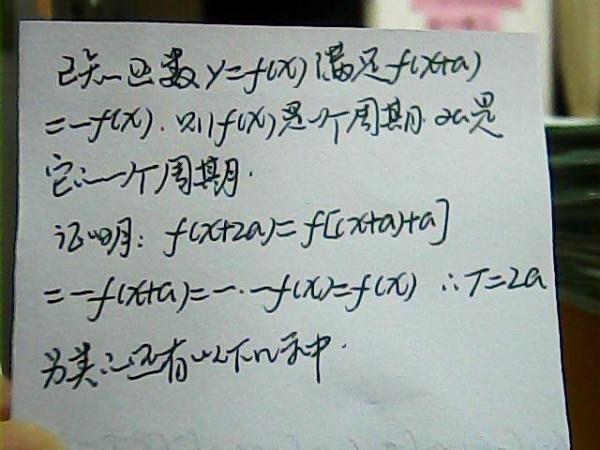 已知函数y=f(x)满足f(x+a)
=-f(x).则f(x)是个周期.2a是
它的一个周期.
证明: f(x+2a)=f[(x+a)+a]
=-f(x+a)=-·-f(x)=f(x) ∴T=2a
另类的还有以下几种.